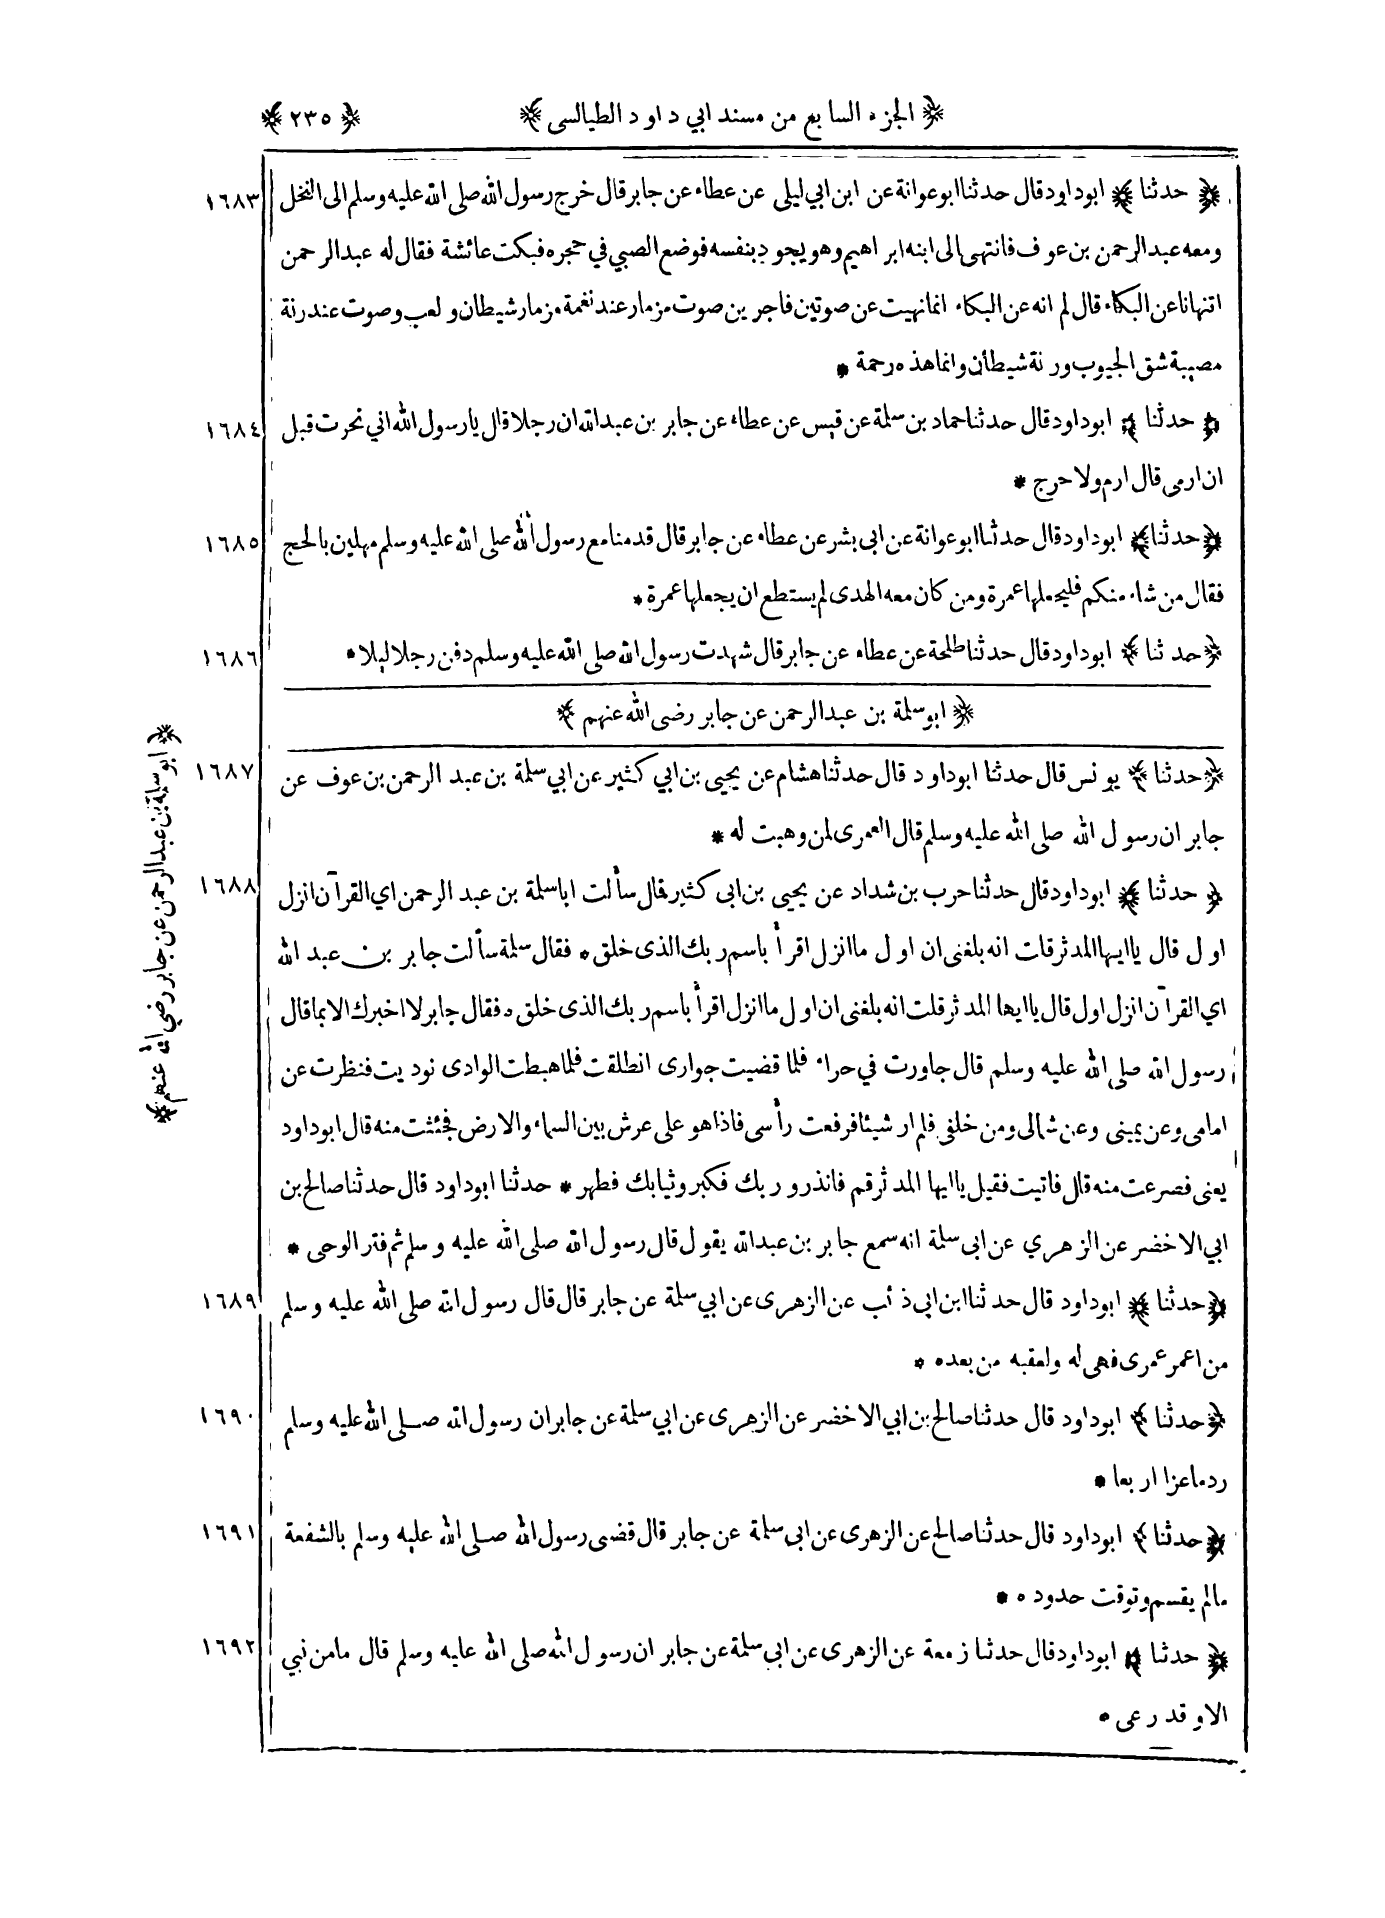 ﴿ الجزء السابع من مسند ابي داود الطيالسى ﴾ ﴿ ٢٣٥ ﴾
﴿ حدثنا ﴾ ابوداود قال حدثنا ابوعوانة عن ابن ابي ليلى عن عطاء عن جابر قال خرج رسول الله صلى الله عليه وسلم الى النخل ١٦٨٣
ومعه عبدالرحمن بن عوف فانتهى الى ابنه ابراهيم وهو يجود بنفسه فوضع الصبي في حجره فبكت عائشة فقال له عبدالرحمن
اتنهانا عن البكاء قال لم انه عن البكاء انما نهيت عن صوتين فاجرين صوت مزمار عند نغمة مزمار شيطان ولعب وصوت عند رنة
مصيبة شق الجيوب ورنة شيطان وانما هذه رحمة *
﴿ حدثنا ﴾ ابوداود قال حدثنا حماد بن سلمة عن قيس عن عطاء عن جابر بن عبدالله ان رجلا قال يا رسول الله اني نحرت قبل ١٦٨٤
ان ارمى قال ارم ولا حرج *
﴿ حدثنا ﴾ ابوداود قال حدثنا ابوعوانة عن ابى بشر عن عطاء عن جابر قال قدمنا مع رسول الله صلى الله عليه وسلم مهلين بالحج ١٦٨٥
فقال من شاء منكم فليجعلها عمرة ومن كان معه الهدى لم يستطع ان يجعلها عمرة *
﴿ حدثنا ﴾ ابوداود قال حدثنا طلحة عن عطاء عن جابر قال شهدت رسول الله صلى الله عليه وسلم دفن رجلا ليلا * ١٦٨٦
﴿ ابوسلمة بن عبدالرحمن عن جابر رضى الله عنهم ﴾
﴿ حدثنا ﴾ يونس قال حدثنا ابوداود قال حدثنا هشام عن يحيى بن ابي كثير عن ابي سلمة بن عبد الرحمن بن عوف عن ١٦٨٧
جابر ان رسول الله صلى الله عليه وسلم قال العمرى لمن وهبت له *
﴿ حدثنا ﴾ ابوداود قال حدثنا حرب بن شداد عن يحيى بن ابى كثير قال سألت اباسلمة بن عبد الرحمن اي القرآن انزل ١٦٨٨
اول قال يا ايها المدثر قات انه بلغنى ان اول ما انزل اقرأ باسم ربك الذى خلق * فقال سلمة سألت جابر بن عبد الله
اي القرآن انزل اول قال يا ايها المدثر قلت انه بلغنى ان اول ما انزل اقرأ باسم ربك الذى خلق ه فقال جابر لا اخبرك الا بما قال
رسول الله صلى الله عليه وسلم قال جاورت في حراء فلما قضيت جوارى انطلقت فلما هبطت الوادى نوديت فنظرت عن
امامى وعن يمينى وعن شمالى ومن خلفى فلم ار شيئا فرفعت رأسى فاذا هو على عرش بين السماء والارض فجئثت منه قال ابوداود
يعنى فصرعت منه قال فاتيت فقيل يا ايها المدثر قم فانذر وربك فكبر وثيابك فطهر * حدثنا ابوداود قال حدثنا صالح بن
ابي الاخضر عن الزهري عن ابى سلمة انه سمع جابر بن عبدالله يقول قال رسول الله صلى الله عليه وسلم ثم فتر الوحى *
﴿ حدثنا ﴾ ابوداود قال حدثنا ابن ابي ذئب عن الزهرى عن ابي سلمة عن جابر قال قال رسول الله صلى الله عليه وسلم ١٦٨٩
من اعمر عمرى فهى له ولعقبه من بعده *
﴿ حدثنا ﴾ ابوداود قال حدثنا صالح بن ابي الاخضر عن الزهرى عن ابي سلمة عن جابر ان رسول الله صلى الله عليه وسلم ١٦٩٠
رد ماعزا اربعا *
﴿ حدثنا ﴾ ابوداود قال حدثنا صالح عن الزهرى عن ابى سلمة عن جابر قال قضى رسول الله صلى الله عليه وسلم بالشفعة ١٦٩١
مالم يقسم وتوقت حدوده *
﴿ حدثنا ﴾ ابوداود قال حدثنا زمعة عن الزهرى عن ابي سلمة عن جابر ان رسول الله صلى الله عليه وسلم قال مامن نبي ١٦٩٢
الا وقد رعى *
﴿ ابوسلمة بن عبدالرحمن عن جابر رضي الله عنهم ﴾